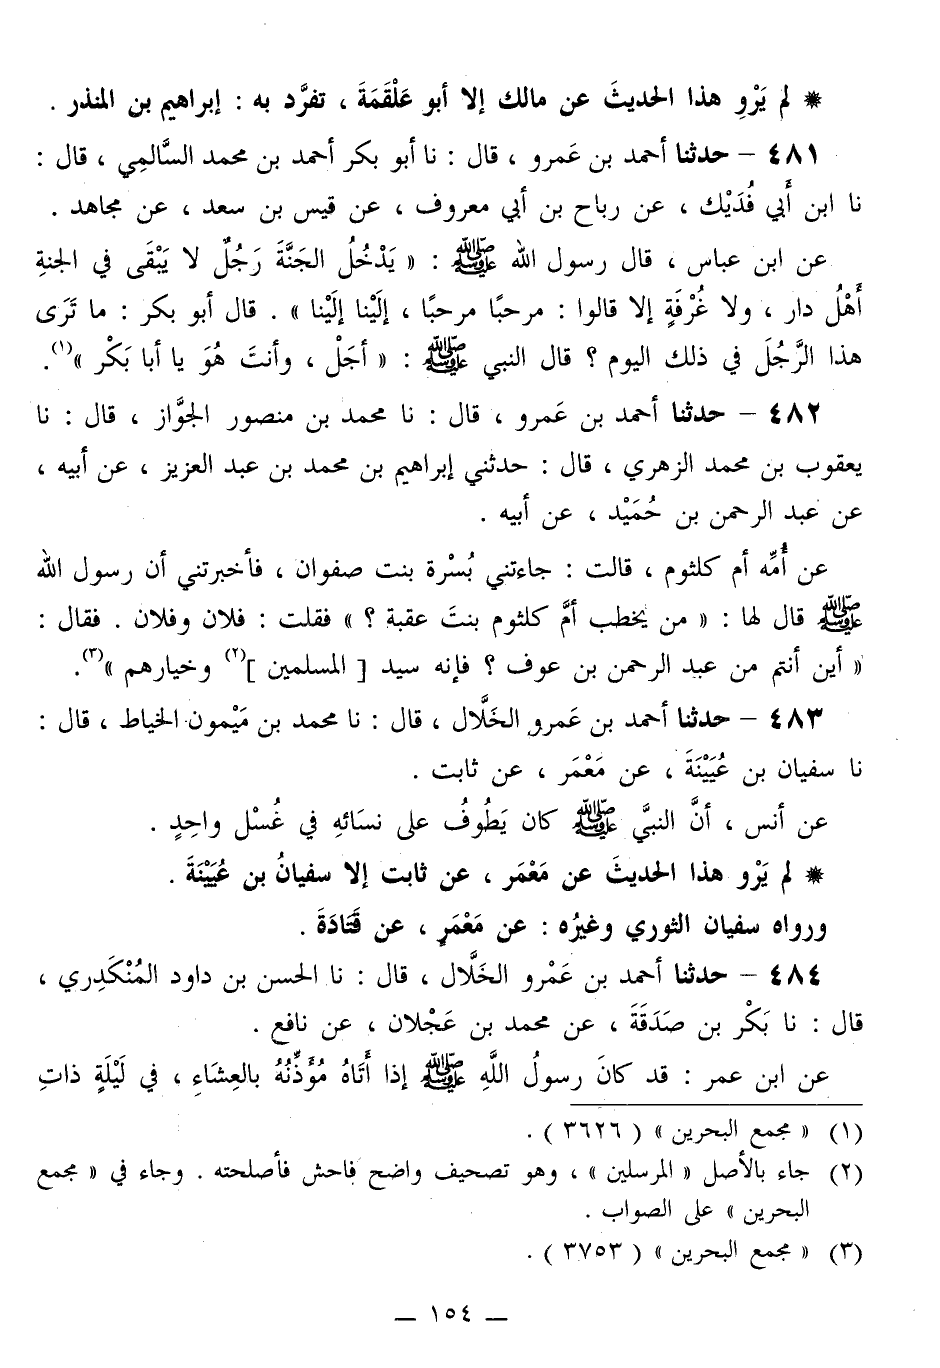 * لم يَرْوِ هذا الحديثَ عن مالك إلا أبو عَلْقَمَةَ ، تفرَّد به : إبراهيم بن المنذر .
٤٨١ – حدثنا أحمد بن عَمرو ، قال : نا أبو بكر أحمد بن محمد السَّالمِي ، قال :
نا ابن أَبي فُدَيْك ، عن رباح بن أبي معروف ، عن قيس بن سعد ، عن مجاهد .
عن ابن عباس ، قال رسول الله ﷺ : « يَدْخُلُ الجَنَّةَ رَجُلٌ لا يَبْقَى في الجنةِ
أَهْلُ دار ، ولا غُرْفَةٍ إلا قالوا : مرحبًا مرحبًا ، إلَيْنا إلَيْنا » . قال أبو بكر : ما تَرَى
هذا الرَّجُلَ في ذلك اليوم ؟ قال النبي ﷺ : « أجَلْ ، وأنتَ هُوَ يا أبا بَكْر »(١).
٤٨٢ – حدثنا أحمد بن عَمرو ، قال : نا محمد بن منصور الجوَّاز ، قال : نا
يعقوب بن محمد الزهري ، قال : حدثني إبراهيم بن محمد بن عبد العزيز ، عن أبيه ،
عن عبد الرحمن بن حُمَيْد ، عن أبيه .
عن أُمِّه أم كلثوم ، قالت : جاءتني بُسْرة بنت صفوان ، فأخبرتني أن رسول الله
ﷺ قال لها : « من يخطب أمَّ كلثوم بنتَ عقبة ؟ » فقلت : فلان وفلان . فقال :
« أين أنتم من عبد الرحمن بن عوف ؟ فإنه سيد [ المسلمين ](٢) وخيارهم »(٣).
٤٨٣ – حدثنا أحمد بن عَمرو الخَلَّال ، قال : نا محمد بن مَيْمون الخياط ، قال :
نا سفيان بن عُيَيْنَةَ ، عن مَعْمَر ، عن ثابت .
عن أنس ، أنَّ النبيَّ ﷺ كان يَطُوفُ على نسَائهِ في غُسْل واحِدٍ .
* لم يَرْو هذا الحديثَ عن مَعْمَر ، عن ثابت إلا سفيانُ بن عُيَيْنَةَ .
ورواه سفيان الثوري وغيرُه : عن مَعْمَرٍ ، عن قَتَادَةَ .
٤٨٤ – حدثنا أحمد بن عَمْرو الخَلَّال ، قال : نا الحسن بن داود المُنْكَدِري ،
قال : نا بَكْر بن صَدَقَةَ ، عن محمد بن عَجْلان ، عن نافع .
عن ابن عمر : قد كانَ رسولُ اللَّهِ ﷺ إذا أَتَاهُ مُؤَذِّنُهُ بالعِشَاءِ ، في لَيْلَةٍ ذاتِ
(١) « مجمع البحرين » ( ٣٦٢٦ ) .
(٢) جاء بالأصل « المرسلين » ، وهو تصحيف واضح فاحش فأصلحته . وجاء في « مجمع
البحرين » على الصواب .
(٣) « مجمع البحرين » ( ٣٧٥٣ ) .
— ١٥٤ —